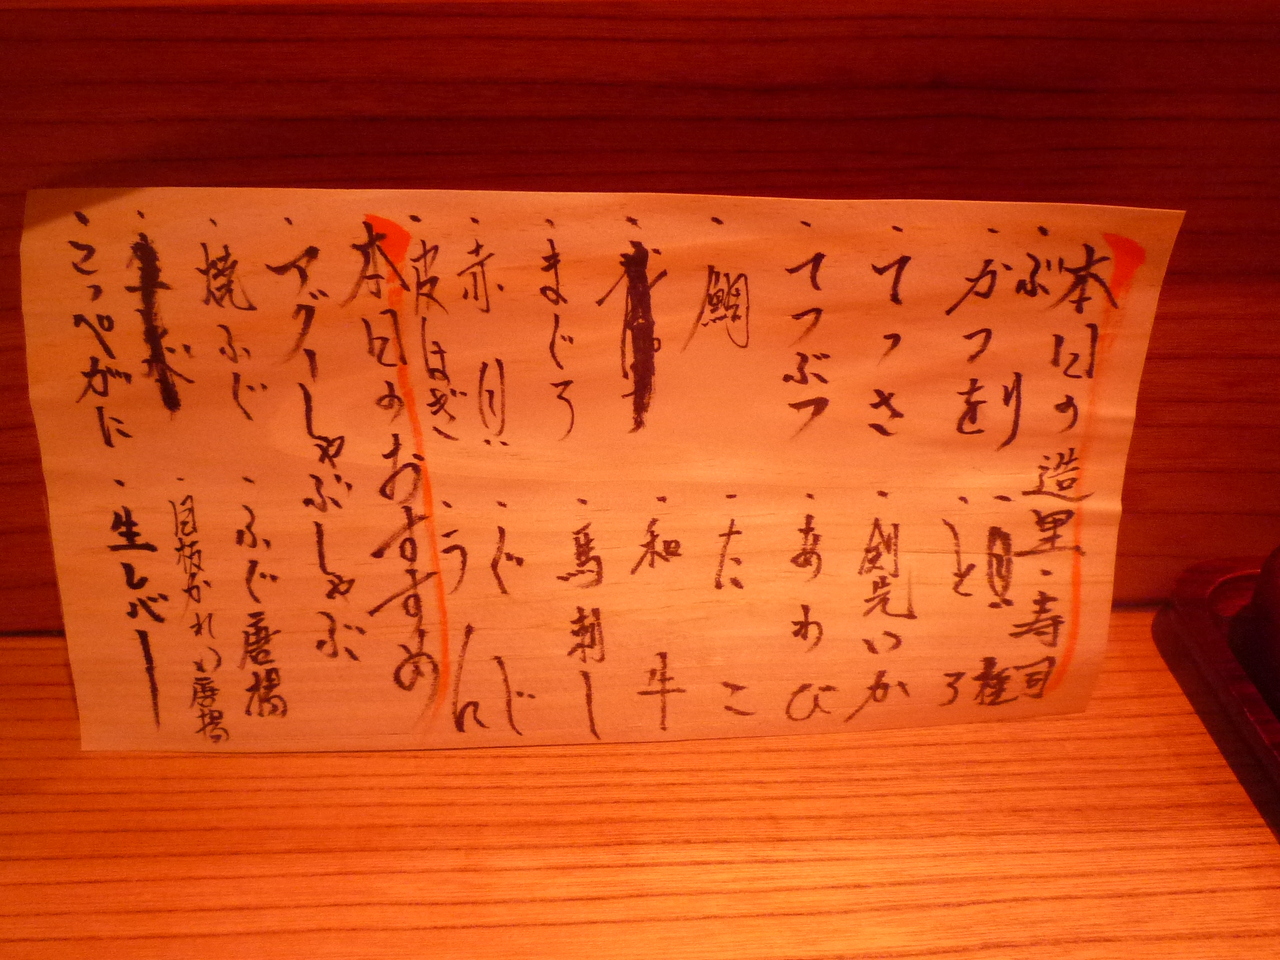 本日の造里・寿司
・ぶり
・かつを
・とろ
・てっさ
・剣先いか
・てつぶつ
・あわび
・鯛
・たこ
・和牛
・まぐろ
・馬刺し
・赤貝
・くじら
・皮はぎ
・うに
本日のおすすめ
・アグーしゃぶしゃぶ
・焼ふぐ
・ふぐ唐揚
・目板がれい唐揚
・こっぺがに
・生レバー